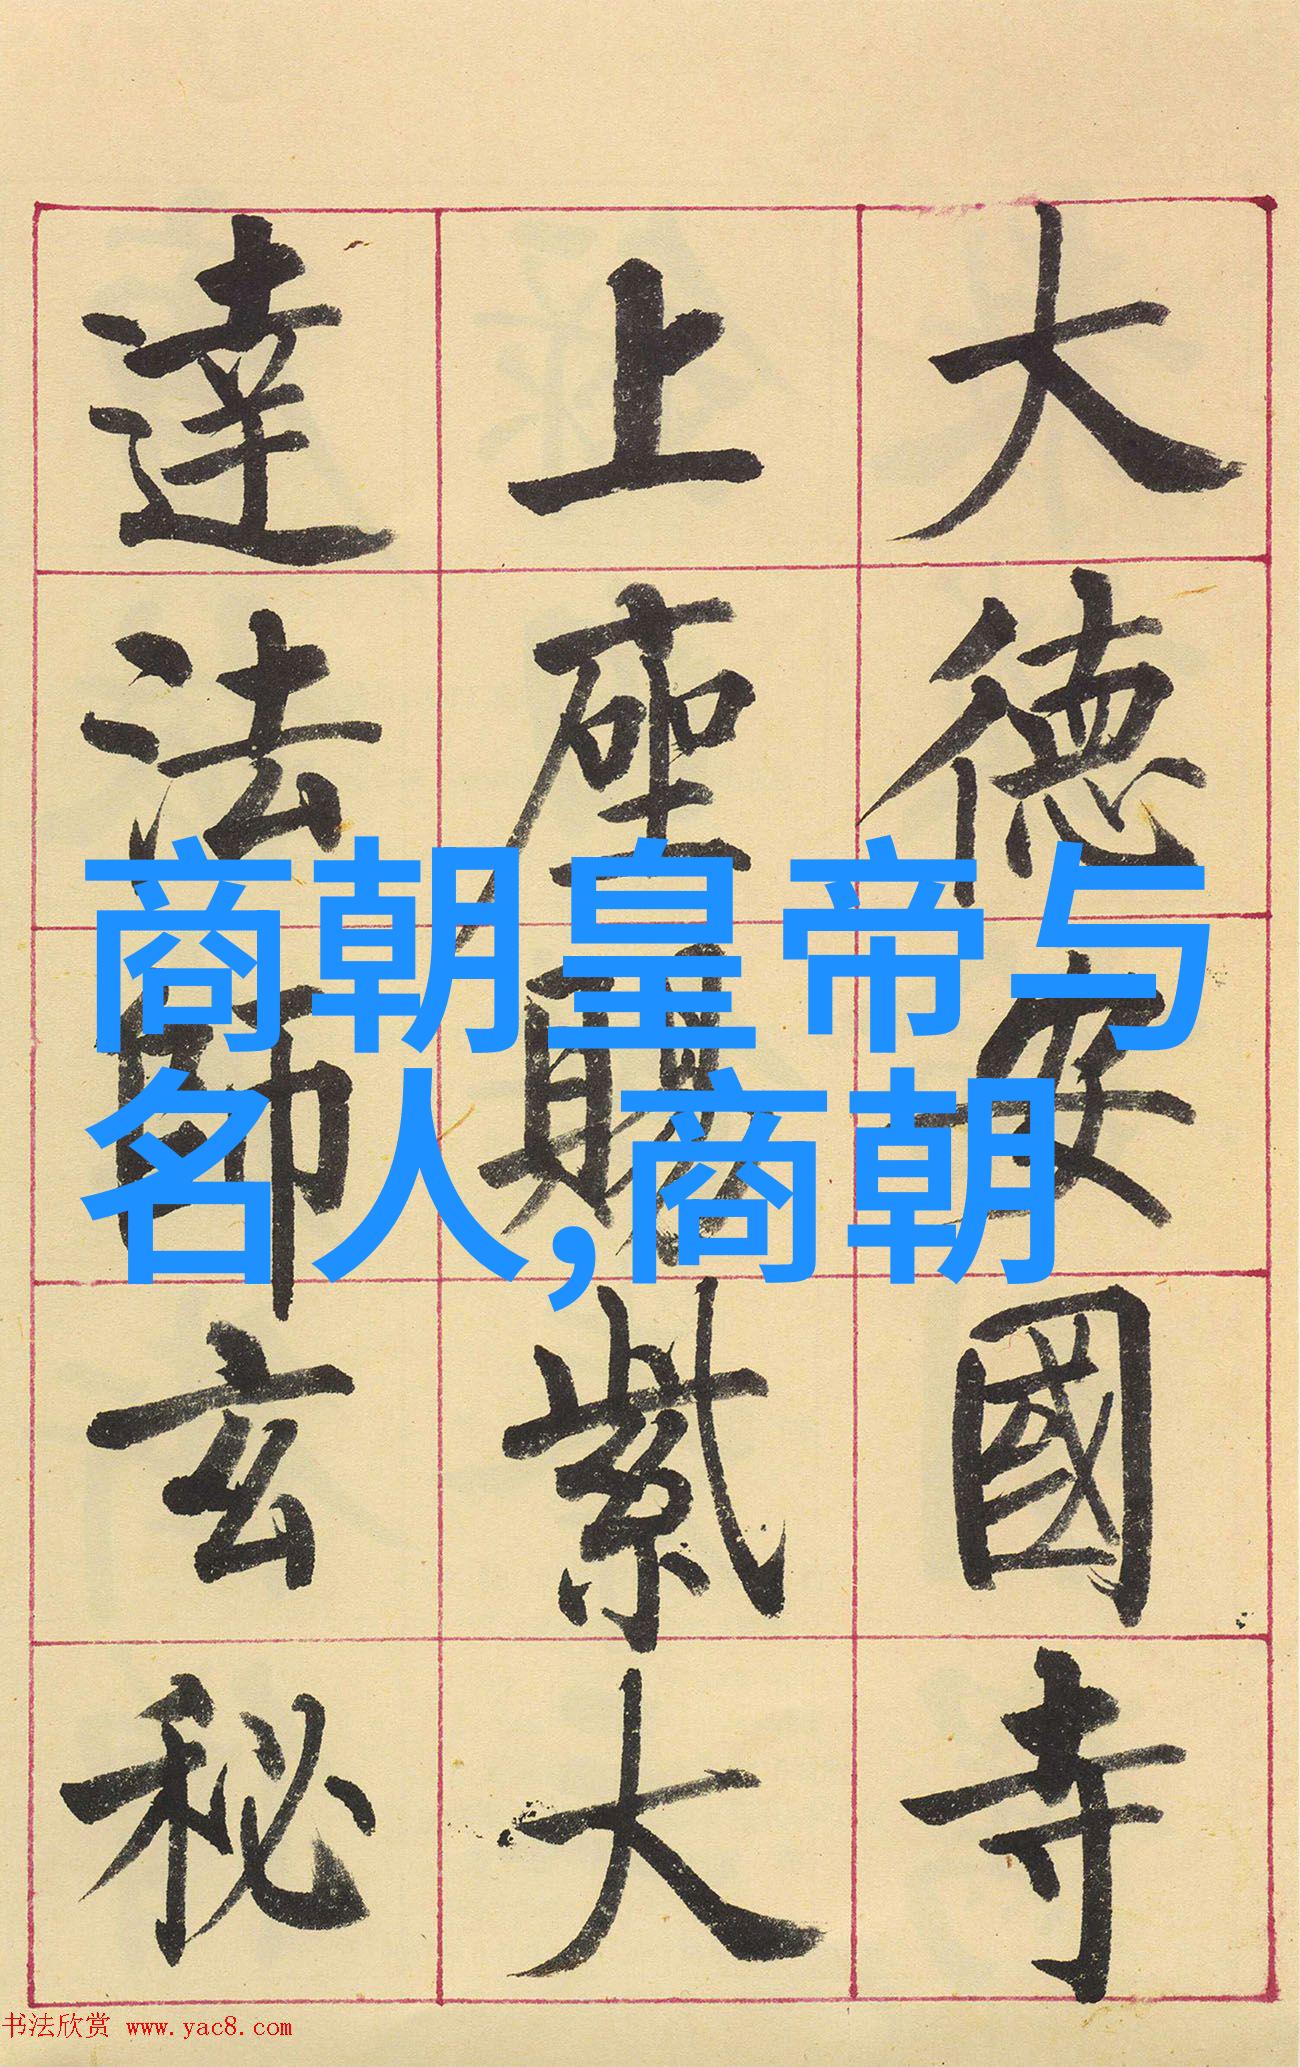 大德安國寺
上座賜紫大
達法師玄秘
商朝皇帝与
名人,商朝
书法欣赏 www.yac8.com